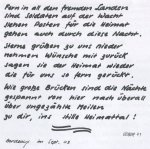 Fern in all den fremden Landen
sind Soldaten auf der Wacht
stehen Posten für die Heimat
gehen auch durch diese Nacht.
Sterne grüßen zu uns nieder
nehmen Wünsche mit zurück
sagen es der Heimat wieder
die für uns so fern gerückt.
Wie große Brücken sind die Nächte
gespannt von hier nach überall
über ungezählte Meilen
zu dir, ins stille Heimattal!
im Sept. 43